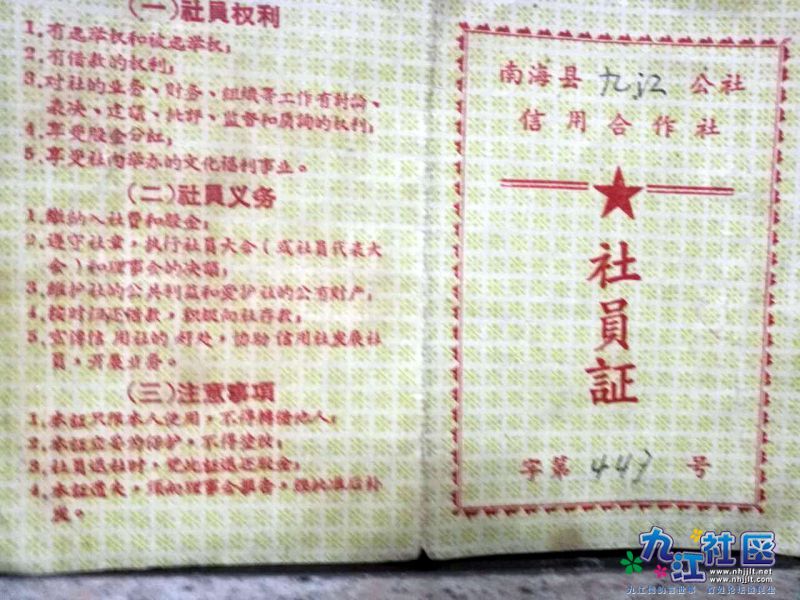 (一)社員权利
1.有选举权和被选举权;
2.有借款的权利;
3.对社的业务、财务、組織等工作有討論、
表决、建議、批評、监督和质詢的权利;
4.享受股金分紅;
5.享受社内举办的文化福利事业。
(二)社員义务
1.繳納入社費和股金;
2.遵守社章,执行社員大会(或社員代表大
会)和理事会的决議;
3.維护社的公共利益和爱护社的公有财产;
4.按时归还借款,积极向社存款;
5.宣傳信用社的好处,协助信用社发展社
員,开展业务。
(三)注意事項
1.本証只限本人使用,不得轉借他人;
2.本証应妥为保护,不得塗改;
3.社員退社时,凭此証退还股金;
4.本証遺失,須向理事会报告,經批准后补
发。
南海县九江公社
信用合作社
社員証
字第 号
九江社区
www.nhjjlt.net
www.nhjjlt.com